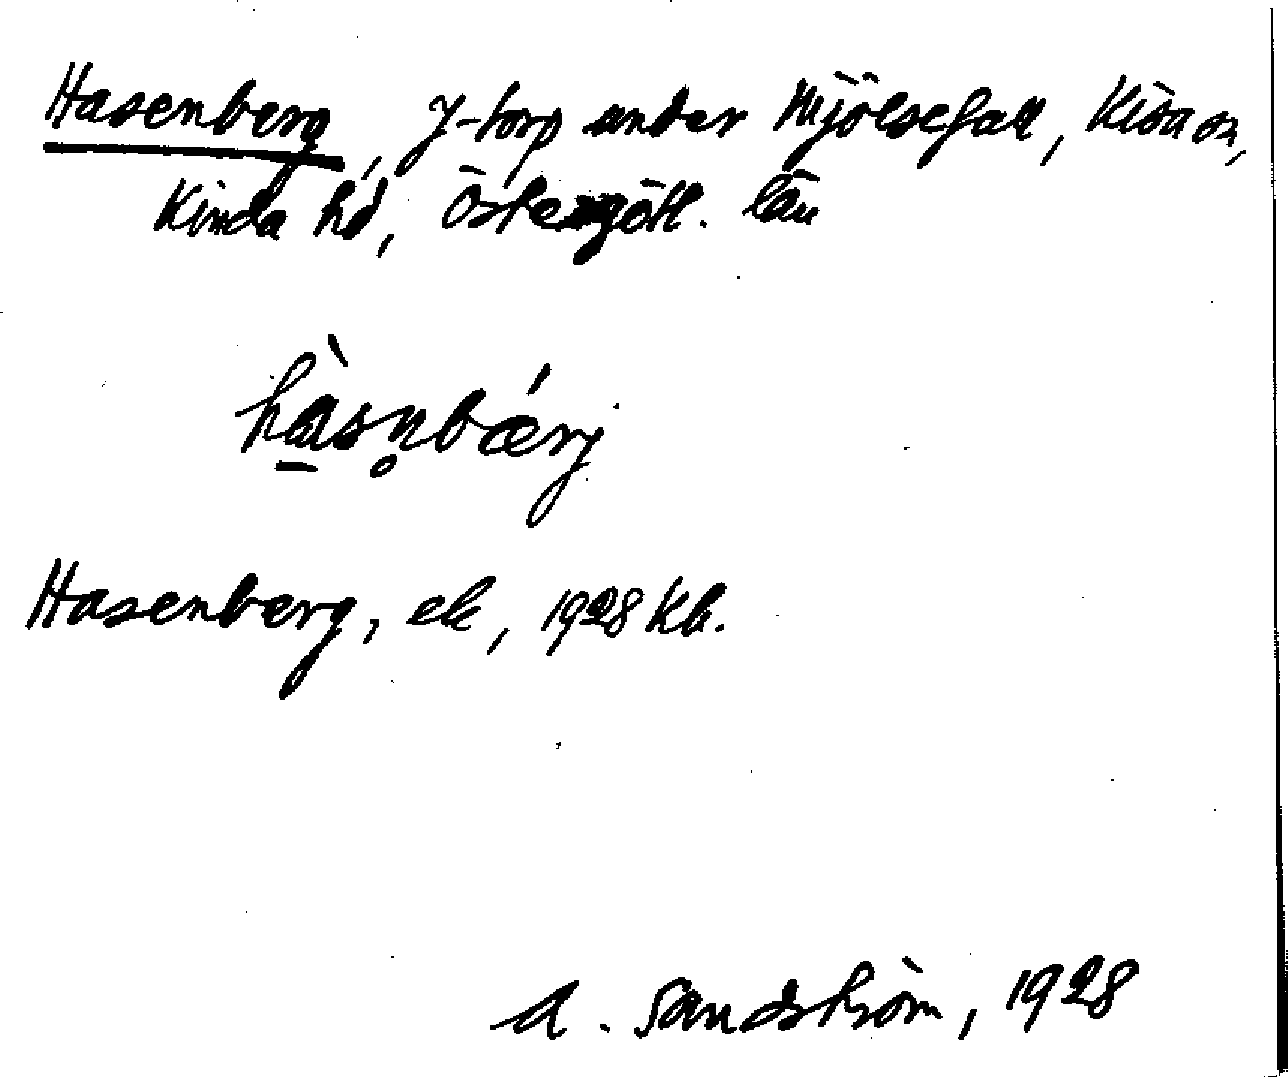 Hasenberg, j-torp under Mjölsefall, Kisa sn,
Kinda hd, Östergötl. län
hàsn̥bǽrj
Hasenberg, ek, 1928 Kb.
A. Sandström, 1928